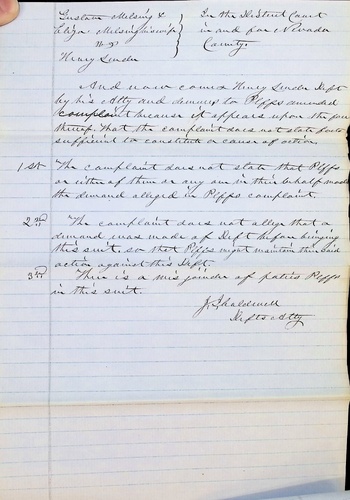 Gustave Melsing & In the District Court
Eliza Melsing his wife in and for Nevada
vs County.
Henry Sender
And now comes Henry Sender Deft
by his Atty and demurs to Plffs amended
complaint because it appears upon the face
thereof. That the complaint does not state facts
sufficient to constitute a cause of action.
1st The complaint does not state that Plffs
or either of them or any one in their behalf made
the demand alleged in Plffs complaint.
2nd The complaint does not allege that a
demand was made of Deft before bringing
this suit, so that Plffs might maintain their said
action against this Deft.
3rd There is a mis joinder of parties Plffs
in this suit.
J. Caldwell
Defts Atty